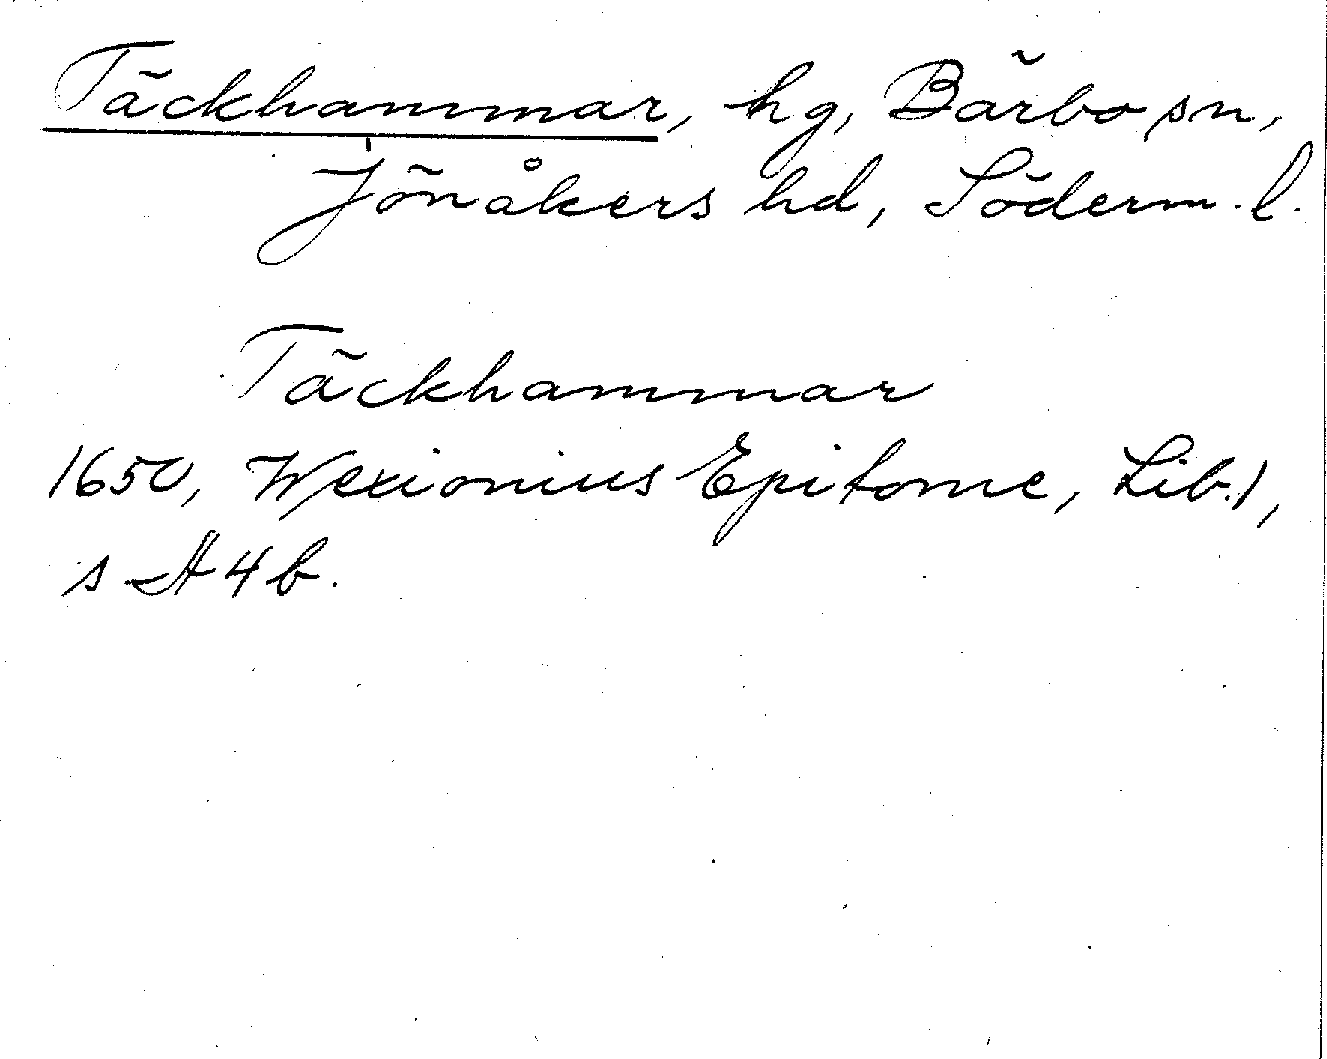 Täckhammar, hg, Bärbo sn,
Jönåkers hd, Söderm. l.
Täckhammar
1650, Wexionius Epitome, Lib. 1,
s A 4 b.